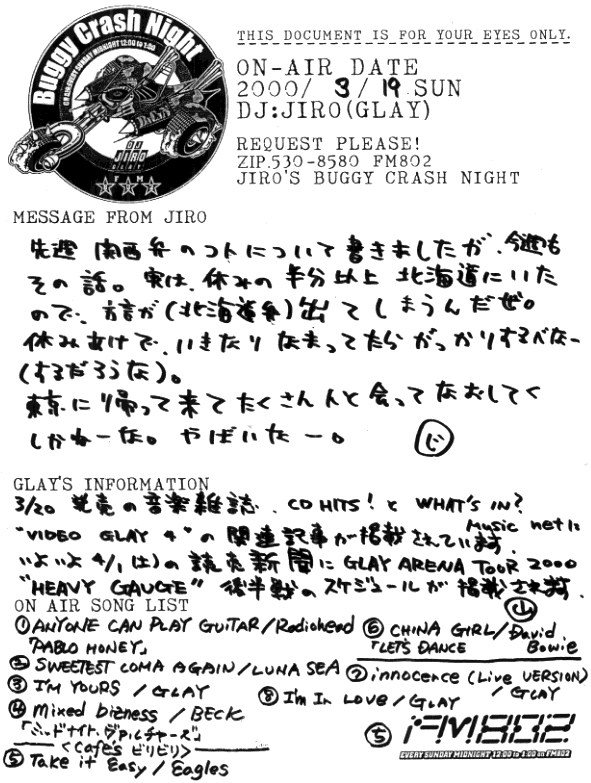 Buggy Crash Night
ON AIR EVERY SUNDAY MIDNIGHT 12:00 to 1:00
DJ
JIRO
GLAY
FM
802
THIS DOCUMENT IS FOR YOUR EYES ONLY.
ON-AIR DATE
2000/ 3 / 19 SUN
DJ:JIRO(GLAY)
REQUEST PLEASE!
ZIP.530-8580 FM802
JIRO'S BUGGY CRASH NIGHT
MESSAGE FROM JIRO
先週 関西弁のコトについて書きましたが、今週も
その話。実は、休みの半分以上 北海道にいた
ので、方言が(北海道弁)出てしまうんだぜ。
休みあけで、いきなり なまってたら がっかりするべなー
(するだろうな)。
東京に帰って来てたくさん人と会ってなおしてく
しかねーな。やばいたー。 ㋛
GLAY'S INFORMATION
3/20 発売の音楽雑誌、CD HITS! と WHAT'S IN?
"VIDEO GLAY 4" の関連記事が掲載されています。
Music net に
いよいよ 4/1(土)の読売新聞に GLAY ARENA TOUR 2000
"HEAVY GAUGE" 後半戦のスケジュールが掲載されます。
山
ON AIR SONG LIST
①ANYONE CAN PLAY GUITAR/Radiohead
「PABLO HONEY」
②SWEETEST COMA AGAIN/LUNA SEA
③I'M YOURS / GLAY
④Mixed bizness / BECK
「ミッドナイト・ヴァルチャーズ」
<Cafe's ビリビリ>
⑤Take it Easy / Eagles
⑥CHINA GIRL/David Bowie
「LET'S DANCE
⑦innocence (Live VERSION) / GLAY
⑧I'm In LOVE/GLAY
ち
FM802
EVERY SUNDAY MIDNIGHT 12:00 to 1:00 on FM802